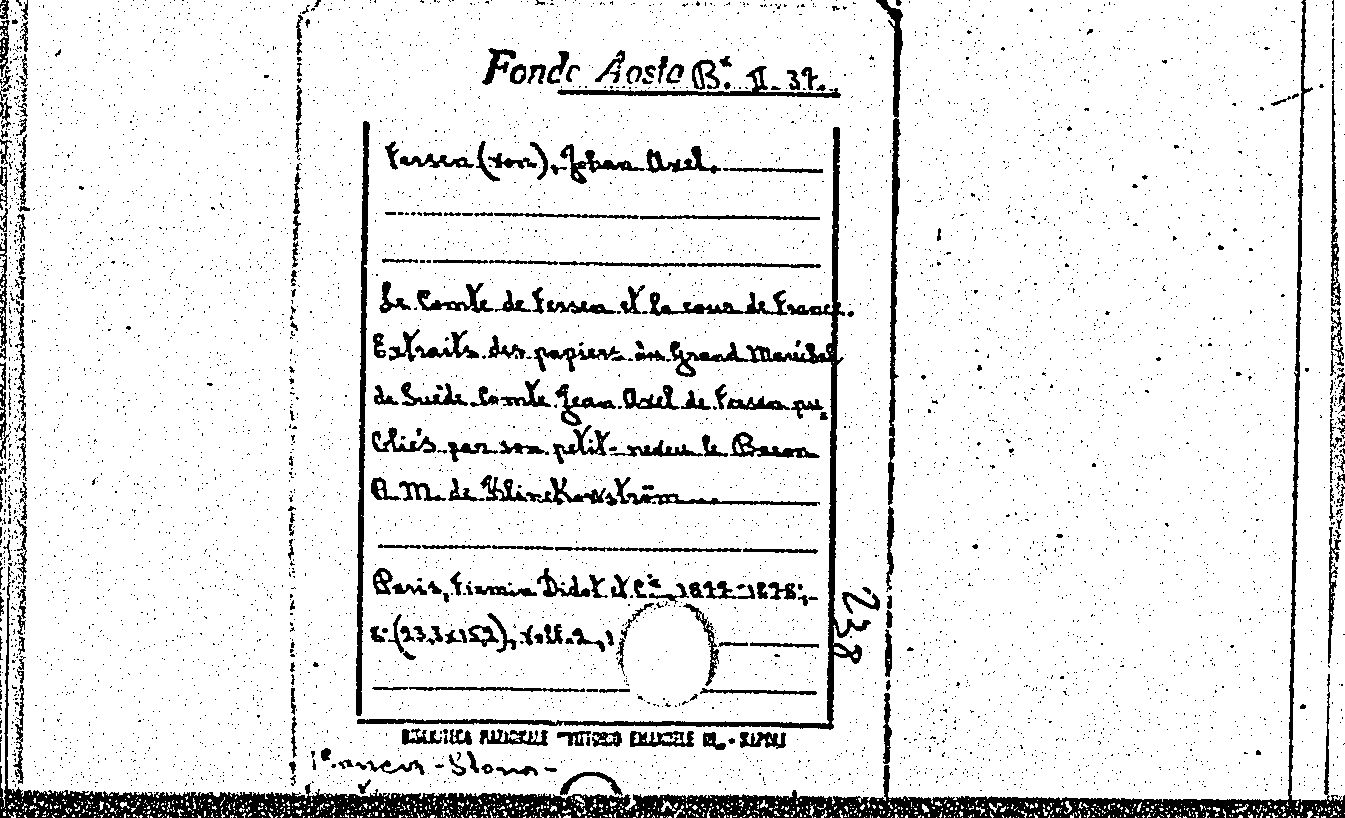 Fondo Aosta B.ª II. 37.
Fersen (von), Johan Axel.
Le Comte de Fersen et la cour de France.
Extraits des papiers du Grand Maréchal
de Suède Comte Jean Axel de Fersen pu-
bliés par son petit-neveu le Baron
R. M. de Klinckowström
Paris, Firmin Didot et C.ie, 1877-1878;
8º (23,3x15,2), voll. 2,
238
BIBLIOTECA NAZIONALE "VITTORIO EMANUELE III" - NAPOLI
Francia - Storia -